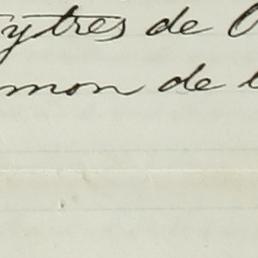 ytres de
mon de